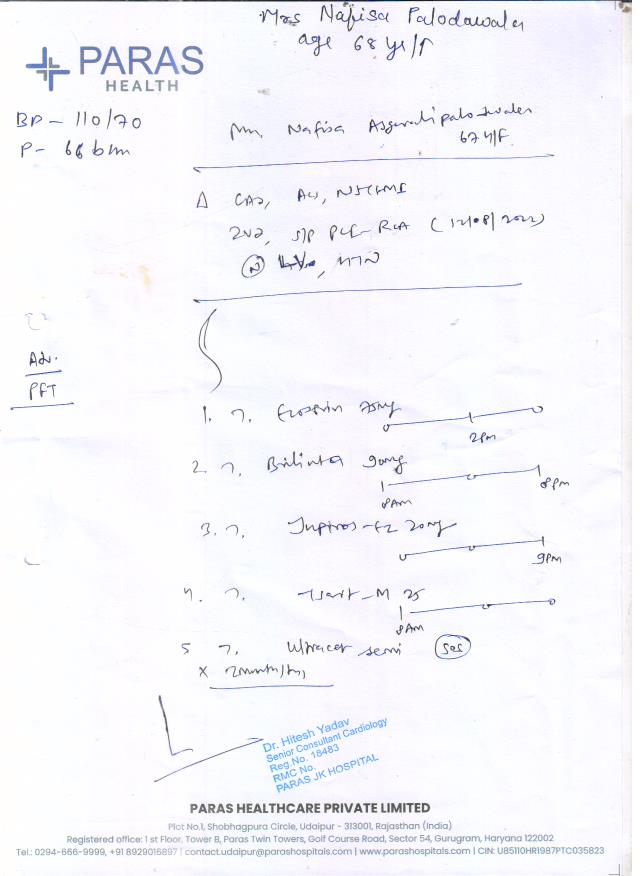 Mrs Nafisa Palodawala
age 68 yr/f
PARAS
HEALTH
BP - 110/70
P - 66 bm
Nafisa Asgarali
67 y/F
Δ CAD, ACS, NSTEMI
2VD, S/P PCI - RCA (12/08/2022)
(N) LV, HTN
Adv.
PFT
1. T. Ecosprin 75mg
2pm
2. T. Brilinta 90mg
8AM
8pm
3. T. 20mg
9pm
4. T. M 25
8AM
5 T. Ultracet semi SOS
X 2 month
Dr. Hitesh Yadav
Senior Consultant Cardiology
Reg.No. 18483
RMC No.
PARAS JK HOSPITAL
PARAS HEALTHCARE PRIVATE LIMITED
Plot No.1, Shobhagpura Circle, Udaipur - 313001, Rajasthan (India)
Registered office: 1 st Floor, Tower B, Paras Twin Towers, Golf Course Road, Sector 54, Gurugram, Haryana 122002
Tel.: 0294-666-9999, +91 8929016897 | contact.udaipur@parashospitals.com | www.parashospitals.com | CIN: U85110HR1987PTC035823